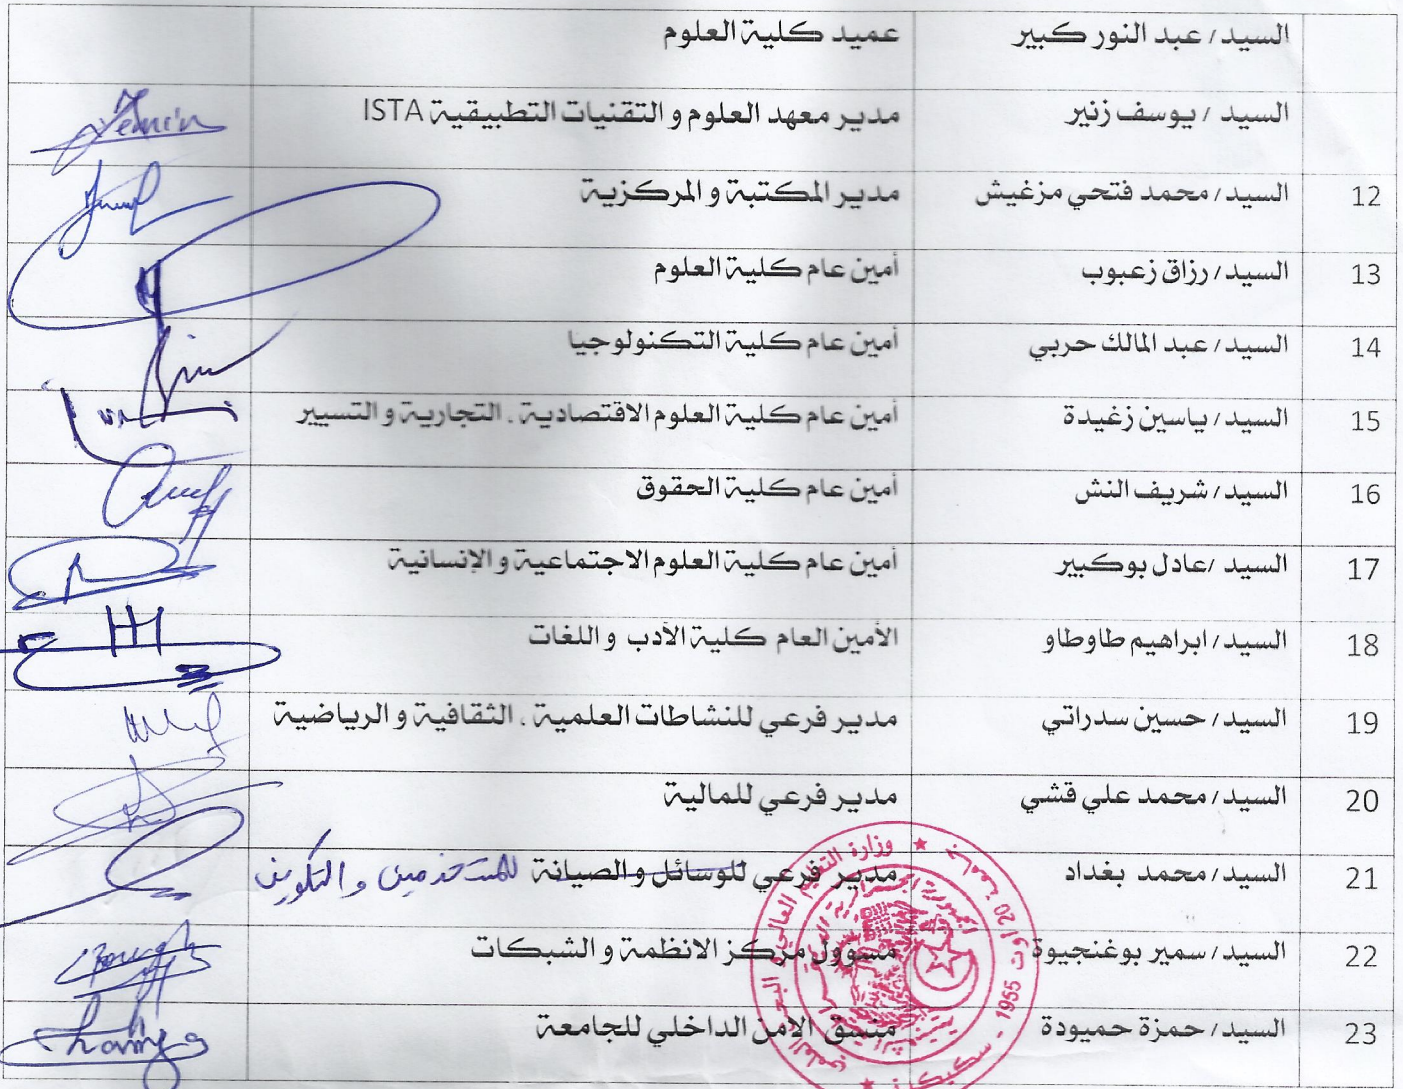 السيد/ عبد النور كبير عميد كلية العلوم
السيد / يوسف زنير مدير معهد العلوم و التقنيات التطبيقية ISTA
12 السيد/ محمد فتحي مزغيش مدير المكتبة و المركزية
13 السيد/ رزاق زعبوب أمين عام كلية العلوم
14 السيد/ عبد المالك حربي أمين عام كلية التكنولوجيا
15 السيد/ ياسين زغيدة أمين عام كلية العلوم الاقتصادية . التجارية و التسيير
16 السيد/ شريف النش أمين عام كلية الحقوق
17 السيد /عادل بوكبير أمين عام كلية العلوم الاجتماعية و الإنسانية
18 السيد/ ابراهيم طاوطاو الأمين العام كلية الأدب و اللغات
19 السيد/ حسين سدراتي مدير فرعي للنشاطات العلمية . الثقافية و الرياضية
20 السيد/ محمد علي قشي مدير فرعي للمالية
21 السيد/ محمد بغداد مدير فرعي للوسائل و الصيانة للمستخدمين و التكوين
22 السيد/ سمير بوغنجيوة مسؤول مركز الانظمة و الشبكات
23 السيد/ حمزة حميودة منسق الامن الداخلي للجامعة
وزارة التعليم العالي و البحث العلمي
جامعة 20 أوت 1955 - سكيكدة